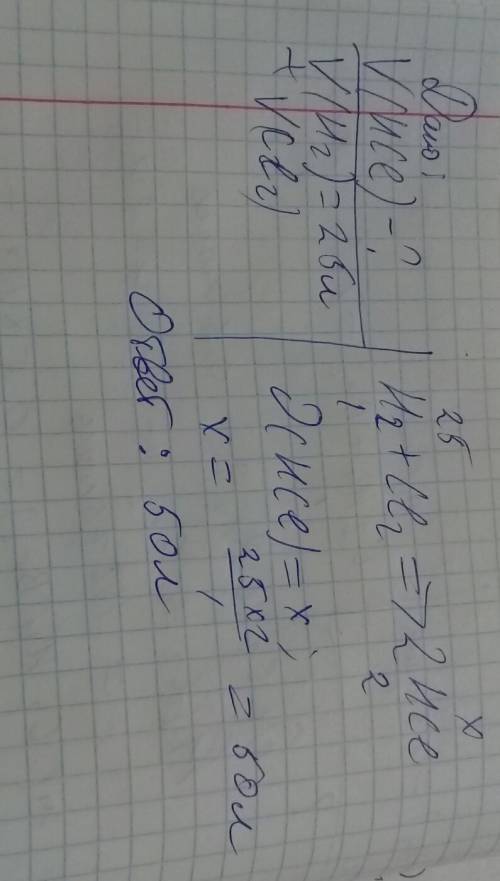 Дано:
V(HCl) - ?
V(H2) = 25л
+ V(Cl2)
25 x
H2 + Cl2 => 2HCl
1 2
V(HCl) = x;
x = 25x2 / 1 = 50л
Ответ: 50л